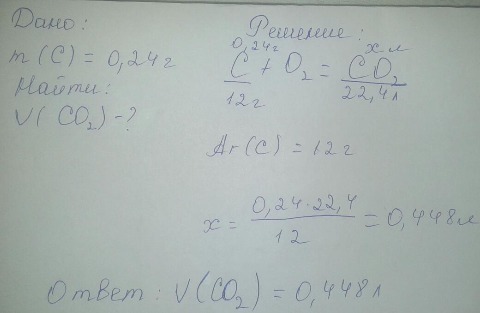 Дано:
m (C) = 0,24 г
Найти:
V( CO₂) - ?
Решение:
0,24г x л
C + O₂ = CO₂
12 г 22,4 л
Ar (C) = 12 г
x = 0,24 · 22,4 / 12 = 0,448 л
Ответ: V(CO₂) = 0,448 л